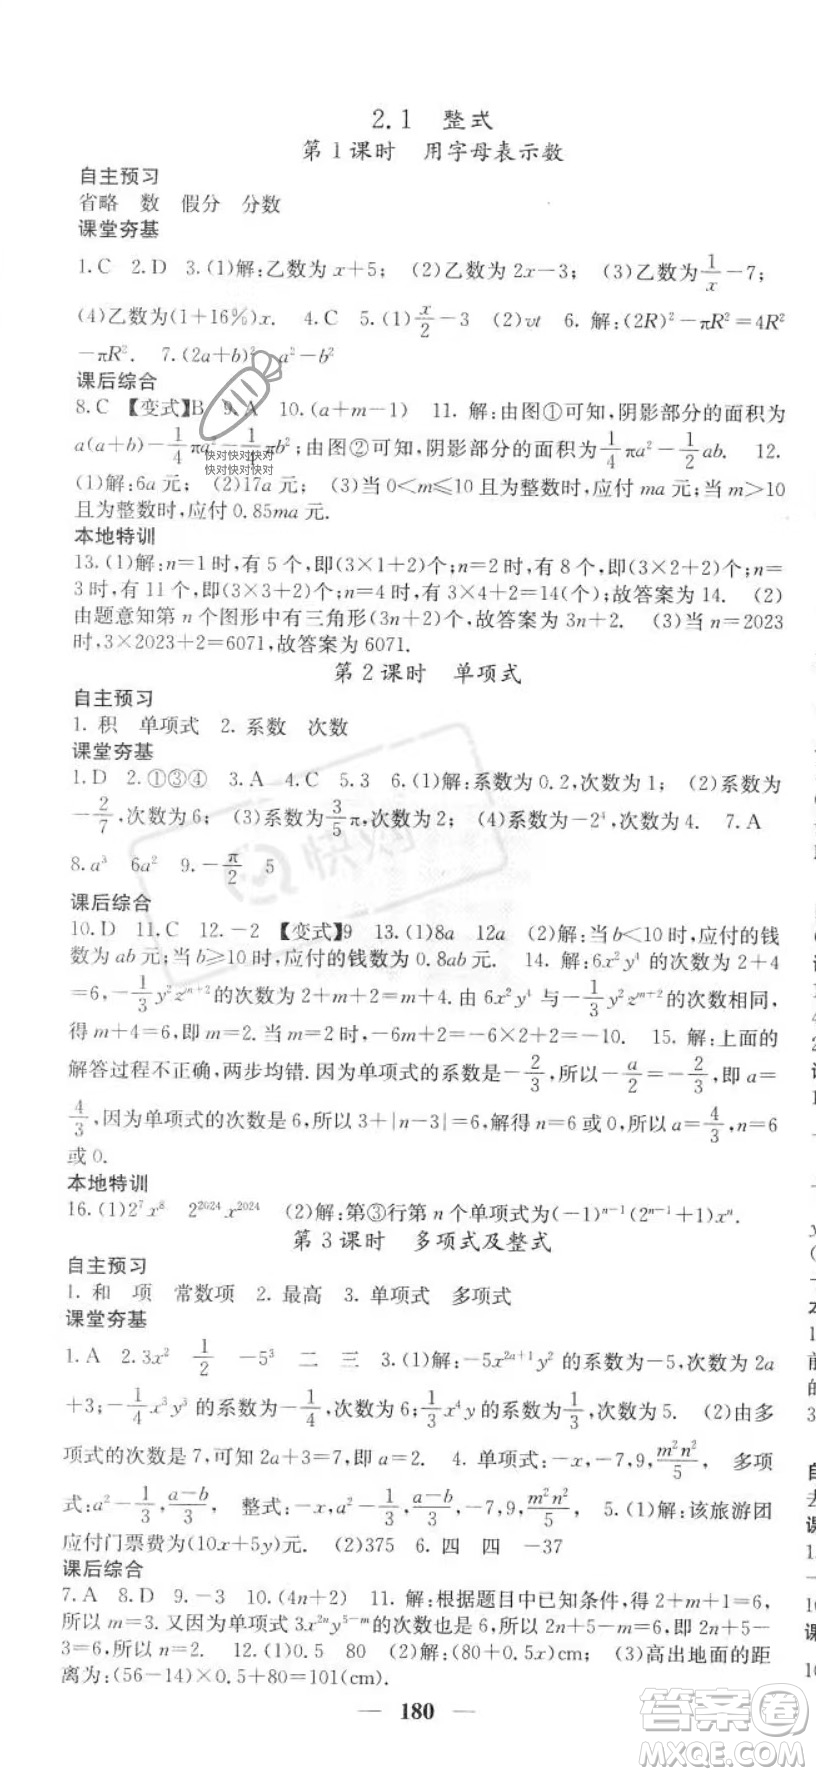 2.1 整式
第1课时 用字母表示数
自主预习
省略 数 假分 分数
课堂夯基
1.C 2.D 3.(1)解:乙数为 x+5; (2)乙数为 2x-3; (3)乙数为 1/x-7;
(4)乙数为(1+16%)x. 4.C 5.(1) x/2-3 (2)vt 6.解:(2R)²-πR²=4R²
-πR². 7.(2a+b)² a²-b²
课后综合
8.C 【变式】B 9.A 10.(a+m-1) 11.解:由图①可知,阴影部分的面积为
a(a+b)-1/4πa²-1/4πb²;由图②可知,阴影部分的面积为1/4πa²-1/2ab. 12.
快对快对快对
快对快对快对
(1)解:6a元; (2)17a元; (3)当0<m≤10且为整数时,应付ma元;当m>10
且为整数时,应付0.85ma元.
本地特训
13.(1)解:n=1时,有5个,即(3×1+2)个;n=2时,有8个,即(3×2+2)个;n=
3时,有11个,即(3×3+2)个;n=4时,有3×4+2=14(个);故答案为14. (2)
由题意知第n个图形中有三角形(3n+2)个,故答案为3n+2. (3)当n=2023
时,3×2023+2=6071,故答案为6071.
第2课时 单项式
自主预习
1.积 单项式 2.系数 次数
课堂夯基
1.D 2.①③④ 3.A 4.C 5.3 6.(1)解:系数为0.2,次数为1; (2)系数为
-2/7,次数为6; (3)系数为3/5π,次数为2; (4)系数为-2⁴,次数为4. 7.A
8.a³ 6a² 9.-π/2 5
快对
课后综合
10.D 11.C 12.-2 【变式】9 13.(1)8a 12a (2)解:当b<10时,应付的钱
数为ab元;当b≥10时,应付的钱数为0.8ab元. 14.解:6x²y⁴的次数为2+4
=6,-1/3y²z^(m+2)的次数为2+m+2=m+4.由6x²y⁴与-1/3y²z^(m+2)的次数相同,
得m+4=6,即m=2.当m=2时,-6m+2=-6×2+2=-10. 15.解:上面的
解答过程不正确,两步均错.因为单项式的系数是-2/3,所以-a/2=-2/3,即a=
4/3,因为单项式的次数是6,所以3+|n-3|=6,解得n=6或0,所以a=4/3,n=6
或0.
本地特训
16.(1)2⁷x⁸ 2²⁰²⁴x²⁰²⁴ (2)解:第③行第n个单项式为(-1)^(n-1)(2^(n-1)+1)xⁿ.
第3课时 多项式及整式
自主预习
1.和 项 常数项 2.最高 3.单项式 多项式
课堂夯基
1.A 2.3x² 1/2 -5³ 二 三 3.(1)解:-5x^(2a+1)y²的系数为-5,次数为2a
+3;-1/4x³y³的系数为-1/4,次数为6;1/3x⁴y的系数为1/3,次数为5. (2)由多
项式的次数是7,可知2a+3=7,即a=2. 4.单项式:-x,-7,9,m²n²/5, 多项
式:a²-1/3,(a-b)/3, 整式:-x,a²-1/3,(a-b)/3,-7,9,m²n²/5. 5.(1)解:该旅游团
应付门票费为(10x+5y)元. (2)375 6.四 四 -37
课后综合
7.A 8.D 9.-3 10.(4n+2) 11.解:根据题目中已知条件,得2+m+1=6,
所以m=3.又因为单项式3x^(2n)y^(5-m)的次数也是6,所以2n+5-m=6,即2n+5-
3=6,所以n=2. 12.(1)0.5 80 (2)解:(80+0.5x)cm; (3)高出地面的距
离为:(56-14)×0.5+80=101(cm).
180
答案圈
MXQE.COM